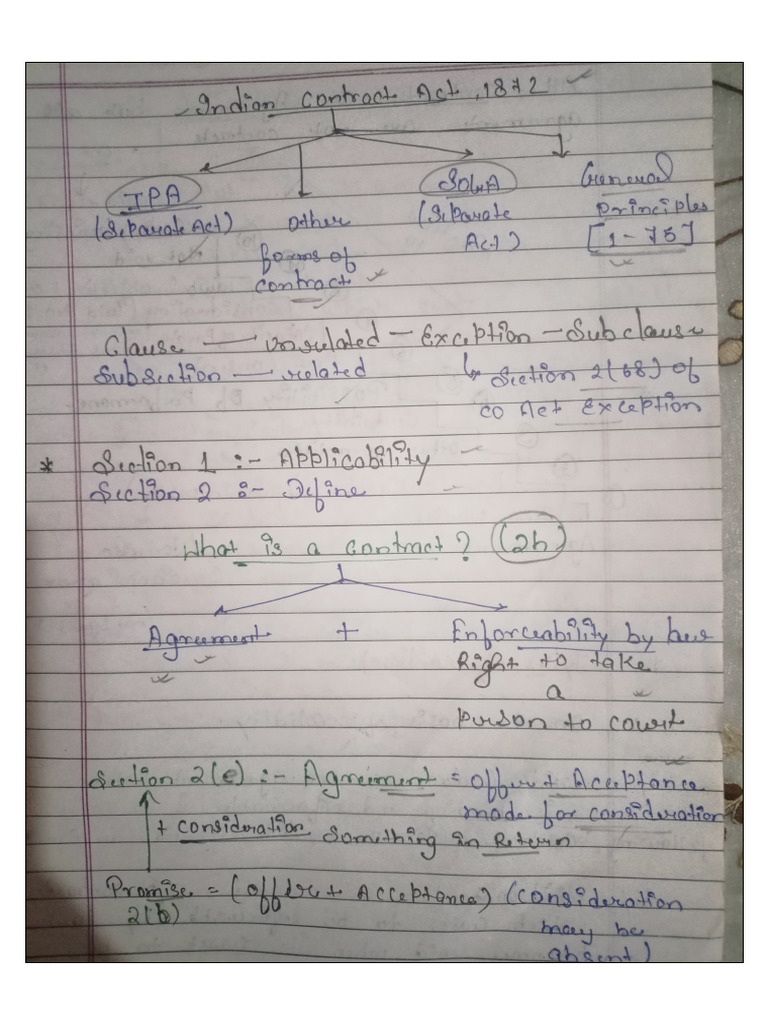 Indian Contract Act, 1872
IPA
SOGA
General
(Separate Act)
Other
(Separate
Principles
forms of
Act)
[1-75]
contract
Clause — unrelated — Exception — Subclause
Subsection — related
Section 2(68) of
CO Act Exception
* Section 1 :- Applicability
Section 2 :- Define
What is a contract? (2h)
Agreement + Enforceability by
Right to take
a
person to court
Section 2(e) :- Agreement = offer + Acceptance
made for consideration
+ consideration Something in Return
Promise = (offer + Acceptance) (consideration
2(b)
may be
absent)